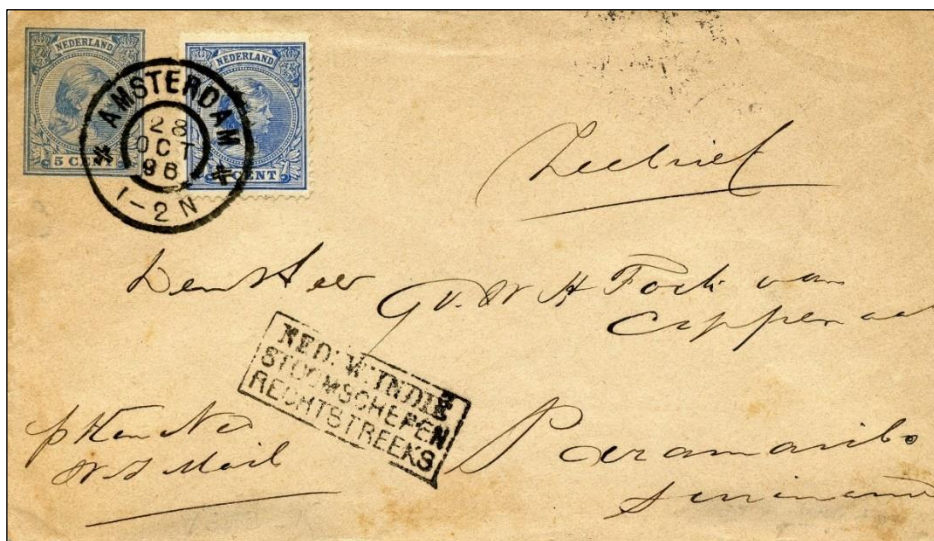 NEDERLAND
5 CENT
NEDERLAND
CENT
AMSTERDAM
28
OCT
96
1-2N
Zeebrief
Den Heer
G. v. W H Fock van
NED: W: INDIË
STOOMSCHEPEN
RECHTSTREEKS
W I Mail
Paramaribo
Suriname